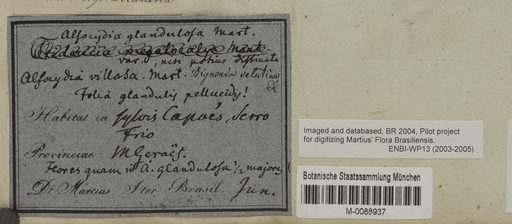 Alsocydia glandulosa Mart.
var. d, nisi potius distincta
Alsocydia villosa. Mart. Bignonia velutina DC
Folia glandulis pellucidis!
Habitat in sylvis Capoës, Serro
Frio
Provincias M Geraës.
Flores quam in A. glandulosa ½ majores!
Dr Martius Iter Brasil. Jun.
Imaged and databased, BR 2004, Pilot project
for digitizing Martius' Flora Brasiliensis.
ENBI-WP13 (2003-2005)
Botanische Staatssammlung München
M-0088937